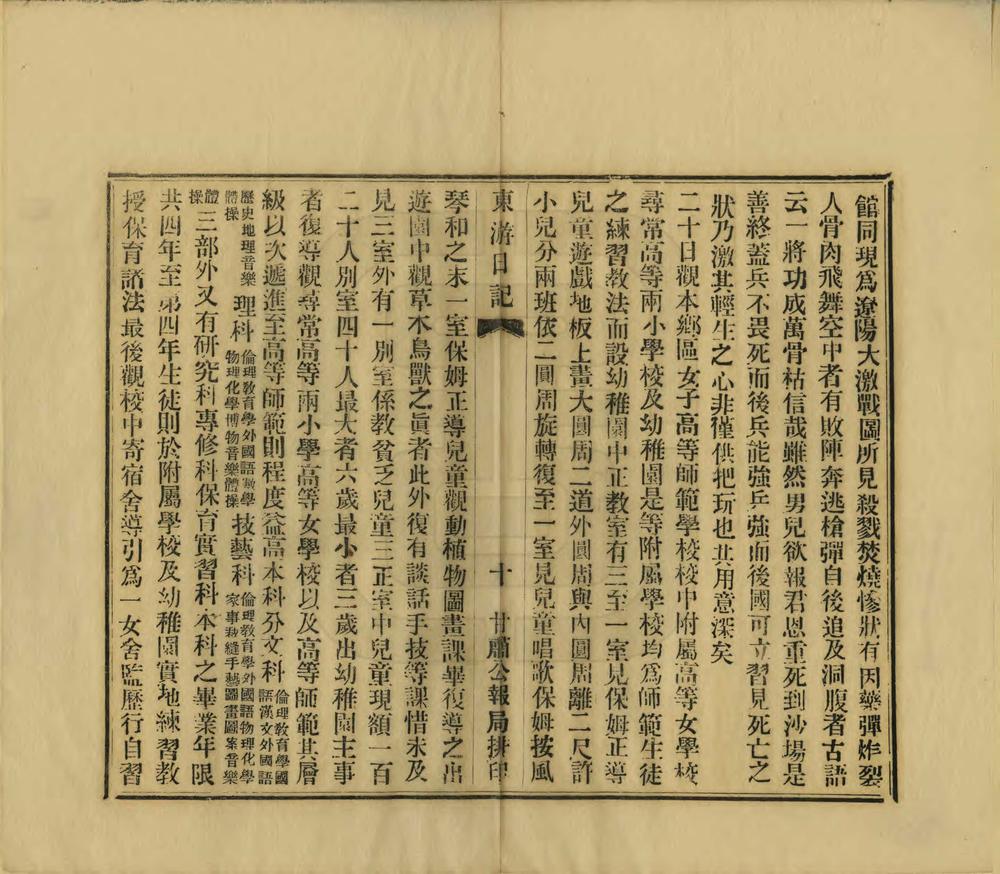 館同現爲遼陽大激戰圖所見殺戮焚燒慘狀有因藥彈炸裂
人骨肉飛舞空中者有敗陣奔逃槍彈自後追及洞腹者古語
云一將功成萬骨枯信哉雖然男兒欲報君恩重死到沙場是
善終蓋兵不畏死而後兵能強兵強而後國可立習見死亡之
狀乃激其輕生之心非僅供把玩也其用意深矣
二十日觀本鄉區女子高等師範學校校中附屬高等女學校
尋常高等兩小學校及幼稚園是等附屬學校均爲師範生徒
之練習教法而設幼稚園中正教室有三至一室見保姆正導
兒童遊戲地板上畫大圓周二道外圓周與內圓周離二尺許
小兒分兩班依二圓周旋轉復至一室見兒童唱歌保姆按風
東游日記 十 甘肅公報局排印
琴和之末一室保姆正導兒童觀動植物圖畫課畢復導之出
遊園中觀草木鳥獸之眞者此外復有談話手技等課惜未及
見三室外有一別室係教貧乏兒童三正室中兒童現額一百
二十人別室四十人最大者六歲最小者三歲出幼稚園主事
者復導觀尋常高等兩小學高等女學校以及高等師範其層
級以次遞進至高等師範則程度益高本科分文科倫理教育學國語漢文外國語
歷史地理音樂體操理科倫理教育學外國語數學物理化學博物音樂體操技藝科倫理教育學外國語物理化學家事裁縫手藝圖畫圖案音樂
體操三部外又有研究科專修科保育實習科本科之畢業年限
共四年至第四年生徒則於附屬學校及幼稚園實地練習教
授保育諸法最後觀校中寄宿舍導引爲一女舍監歷行自習